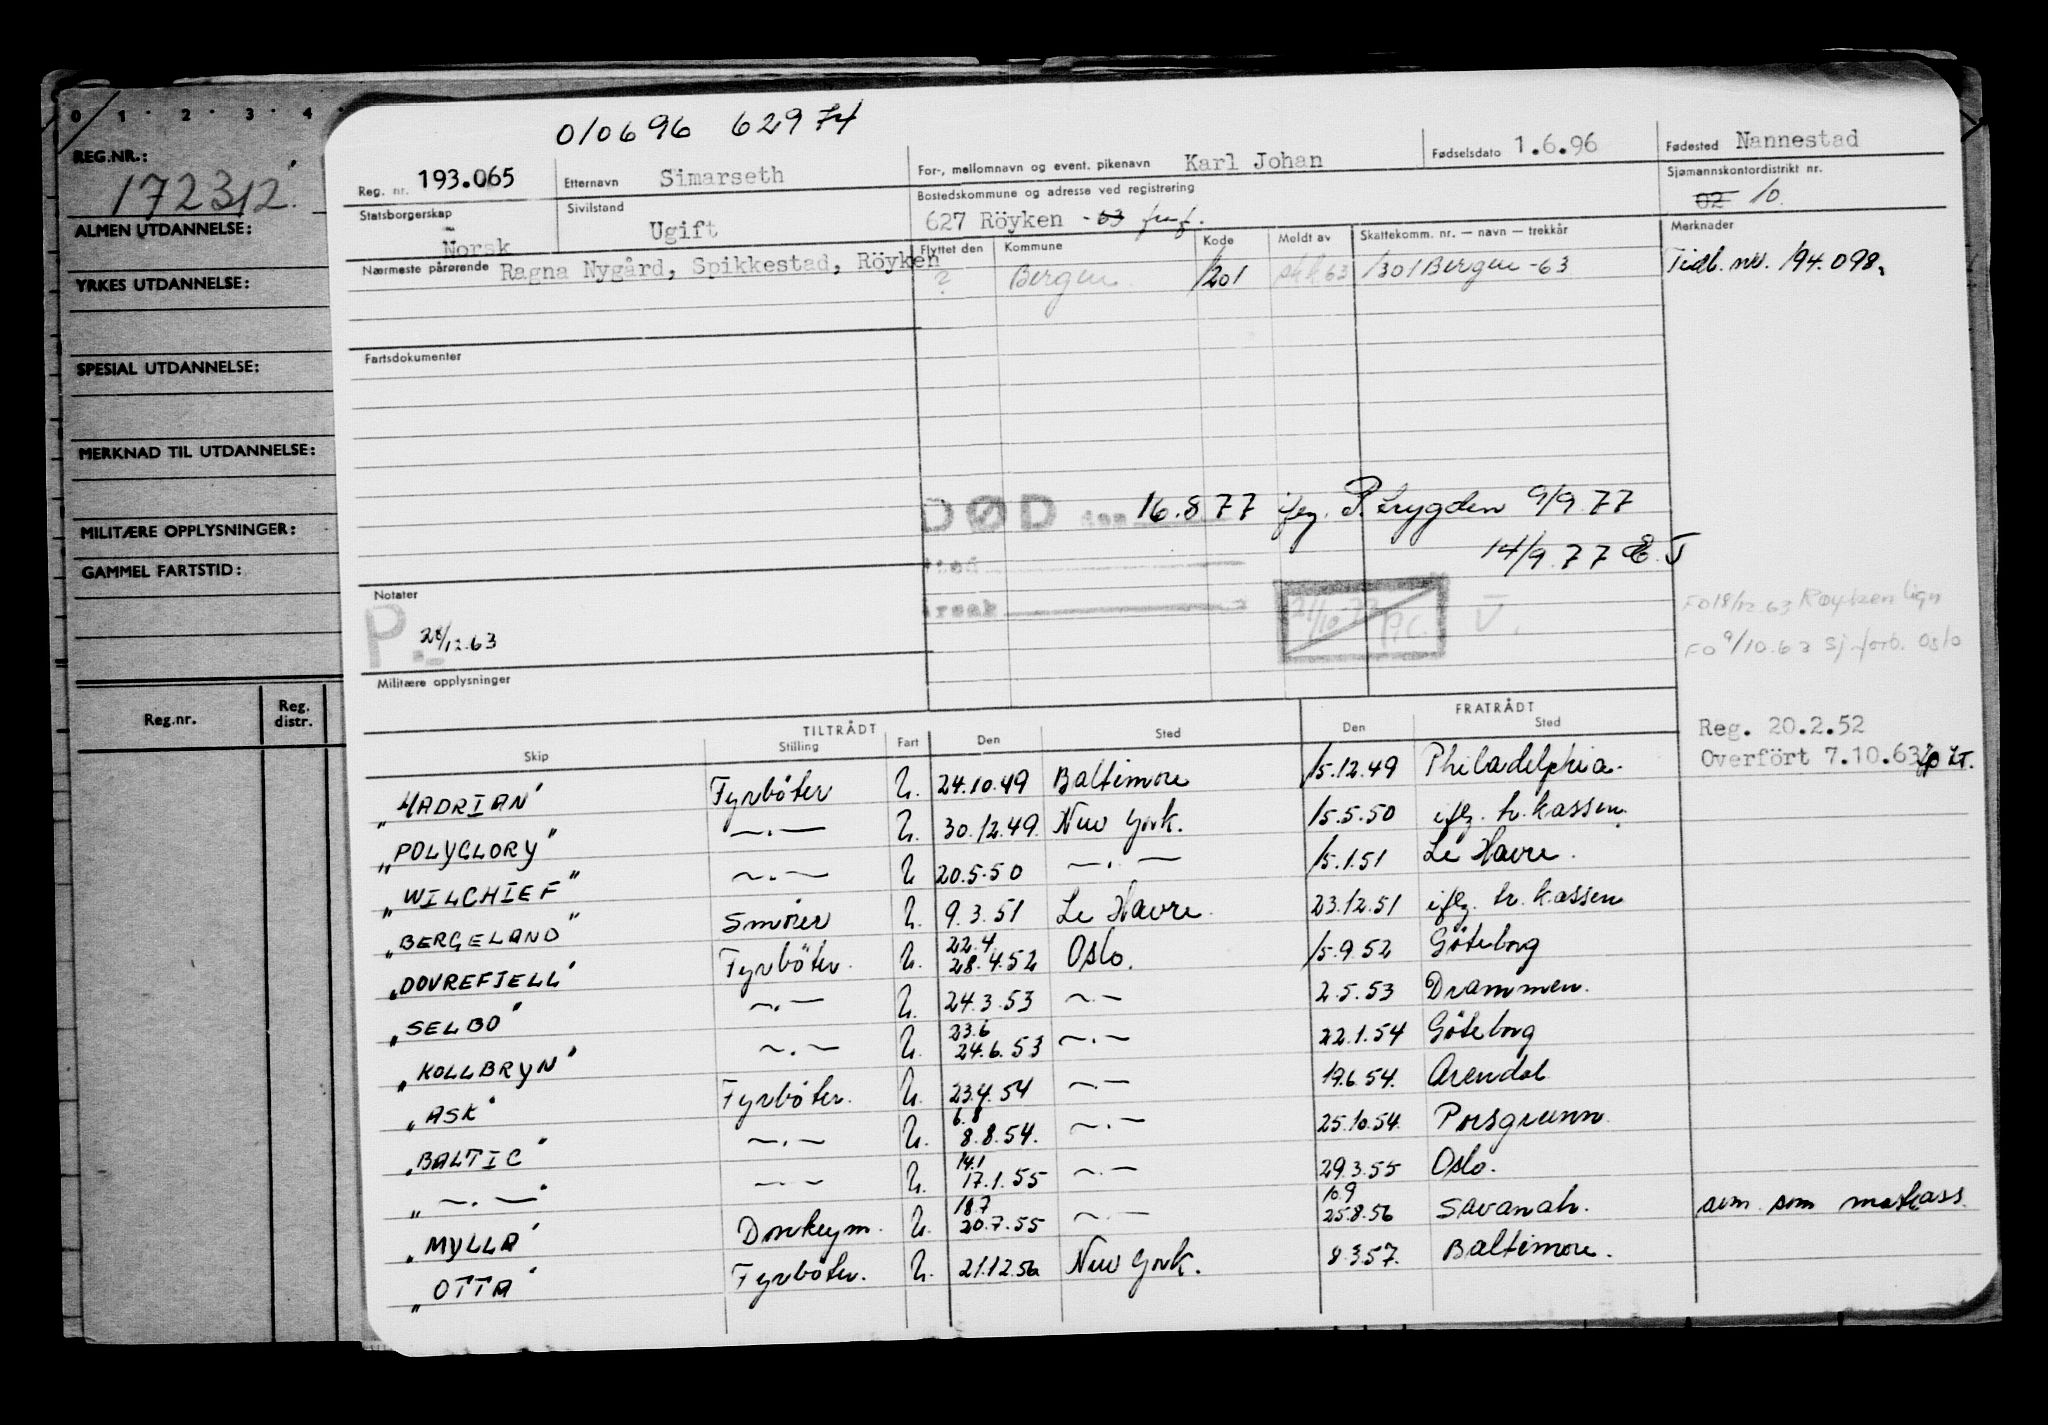 0 1 2 3 4
REG.NR.:
172312.
ALMEN UTDANNELSE:
YRKES UTDANNELSE:
SPESIAL UTDANNELSE:
MERKNAD TIL UTDANNELSE:
MILITÆRE OPPLYSNINGER:
GAMMEL FARTSTID:
Reg.nr. Reg. distr.
010696 62974
Reg. nr. 193.065 Etternavn Simarseth For-, mellomnavn og event. pikenavn Karl Johan Fødselsdato 1.6.96 Fødested Nannestad
Statsborgerskap Norsk Sivilstand Ugift Bostedskommune og adresse ved registrering 627 Röyken -63 Sjømannskontordistrikt nr. 02 10.
Nærmeste pårørende Ragna Nygård, Spikkestad, Röyken
Flyttet den Kommune Kode Meldt av Skattekomm. nr. — navn — trekkår Merknader
? Bergen 1201 63 1301 Bergen -63 Tidl. nr. 194.098.
Fartsdokumenter
DØD den 16.8.77 flg. P. trygden 9/9 77
14/9.77 E.J
sted
årsak
21/10-77
V.
Notater
P. 28/12.63
FO 18/12 63 Røyken lign
FO 9/10.63 Sj.forb. Oslo
Militære opplysninger
Reg. 20.2.52
Overfört 7.10.63
TILTRÅDT FRATRÅDT
Skip Stilling Fart Den Sted Den Sted
"HADRIAN" Fyrböter U. 24.10.49 Baltimore 15.12.49 Philadelphia.
"POLYGLORY" —.— U. 30.12.49. New York. 15.5.50 iflg. tr. kassen.
"WILCHIEF" —.— U 20.5.50 —.— 15.1.51 Le Havre.
"BERGELAND" Smører U. 9.3.51 Le Havre. 23.12.51 iflg. tr. kassen
"DOVREFJELL" Fyrböter. U. 22.4 28.4.52 Oslo. 15.9.52 Göteborg
"SELBO" —.— U. 24.3.53 —.— 2.5.53 Drammen.
"KOLLBRYN" —.— U. 23.6 24.6.53 —.— 22.1.54 Göteborg
"ASK" Fyrböter. U. 23.4.54 —.— 19.6.54. Arendal
"BALTIC" —.— U. 6.8 8.8.54. —.— 25.10.54. Porsgrunn.
"—.—" —.— U. 14.1 17.1.55 —.— 29.3.55 Oslo.
"MYLLA" Donkeym. U. 18.7 20.7.55 —.— 10.9 25.8.56 Savanah. som
"OTTA" Fyrböter. U. 21.12.56 New York. 8.3.57. Baltimore.